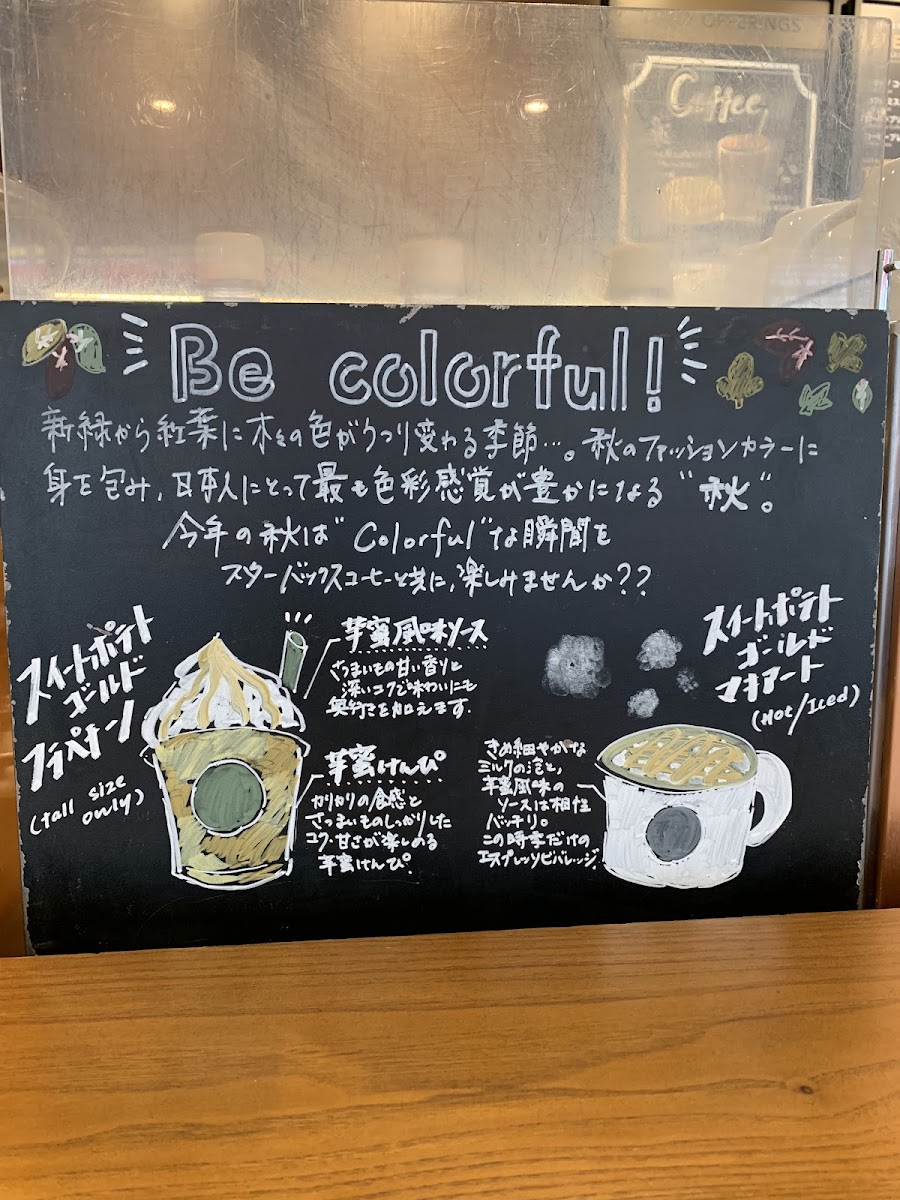 OFFERINGS
Coffee
Be colorful!
新緑から紅葉に木々の色がうつり変わる季節…。秋のファッションカラーに
身を包み、日本人にとって最も色彩感覚が豊かになる"秋"。
今年の秋は"Colorful"な瞬間を
スターバックスコーヒーと共に、楽しみませんか??
スイートポテト
ゴールド
フラペチーノ
(tall size
only)
芋蜜風味ソース
さつまいもの甘い香りと
深いコクで味わいにも
奥行きを加えます.
芋蜜けんぴ
かりかりの食感と
さつまいものしっかりした
コク・甘さが楽しめる
芋蜜けんぴ.
スイートポテト
ゴールド
マキアート
(Hot/Iced)
きめ細やかな
ミルクの泡と,
芋蜜風味の
ソースは相性
バッチリ。
この時季だけの
エスプレッソビバレッジ.